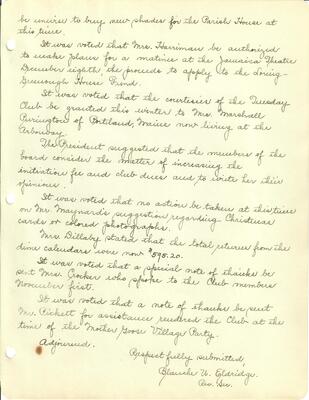 be unwise to buy new shades for the Parish House at
this time.
It was voted that Mrs. Harriman be authorized
to make plans for a matinee at the Jamaica Theatre
December eighth the proceeds to apply to the Loring-
Greenough House Fund.
It was voted that the courtesies of the Tuesday
Club be granted this winter to Mrs. Marshall
Purington of Portland, Maine now living at the
Arborway.
The President suggested that the members of the
board consider the matter of increasing the
initiation fee and club dues and to write her their
opinions.
It was voted that no action be taken at this time
on Mr. Maynard's suggestion regarding Christmas
cards or colored photographs.
Mrs. Billaby stated that the total returns from the
dime calendars were now $595.20.
It was voted that a special note of thanks be
sent Mrs. Crocker who spoke to the Club members
November first.
It was voted that a note of thanks be sent
Mr. Pickett for assistance rendered the Club at the
time of the Mother Goose Village Party.
Adjourned.
Respectfully submitted,
Blanche W. Eldridge.
Rec. Sec.